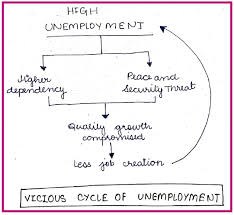 HIGH
UNEMPLOYMENT
Higher
dependency
Peace and
Security Threat
Quality growth
compromised
Less job creation
VICIOUS CYCLE OF UNEMPLOYMENT